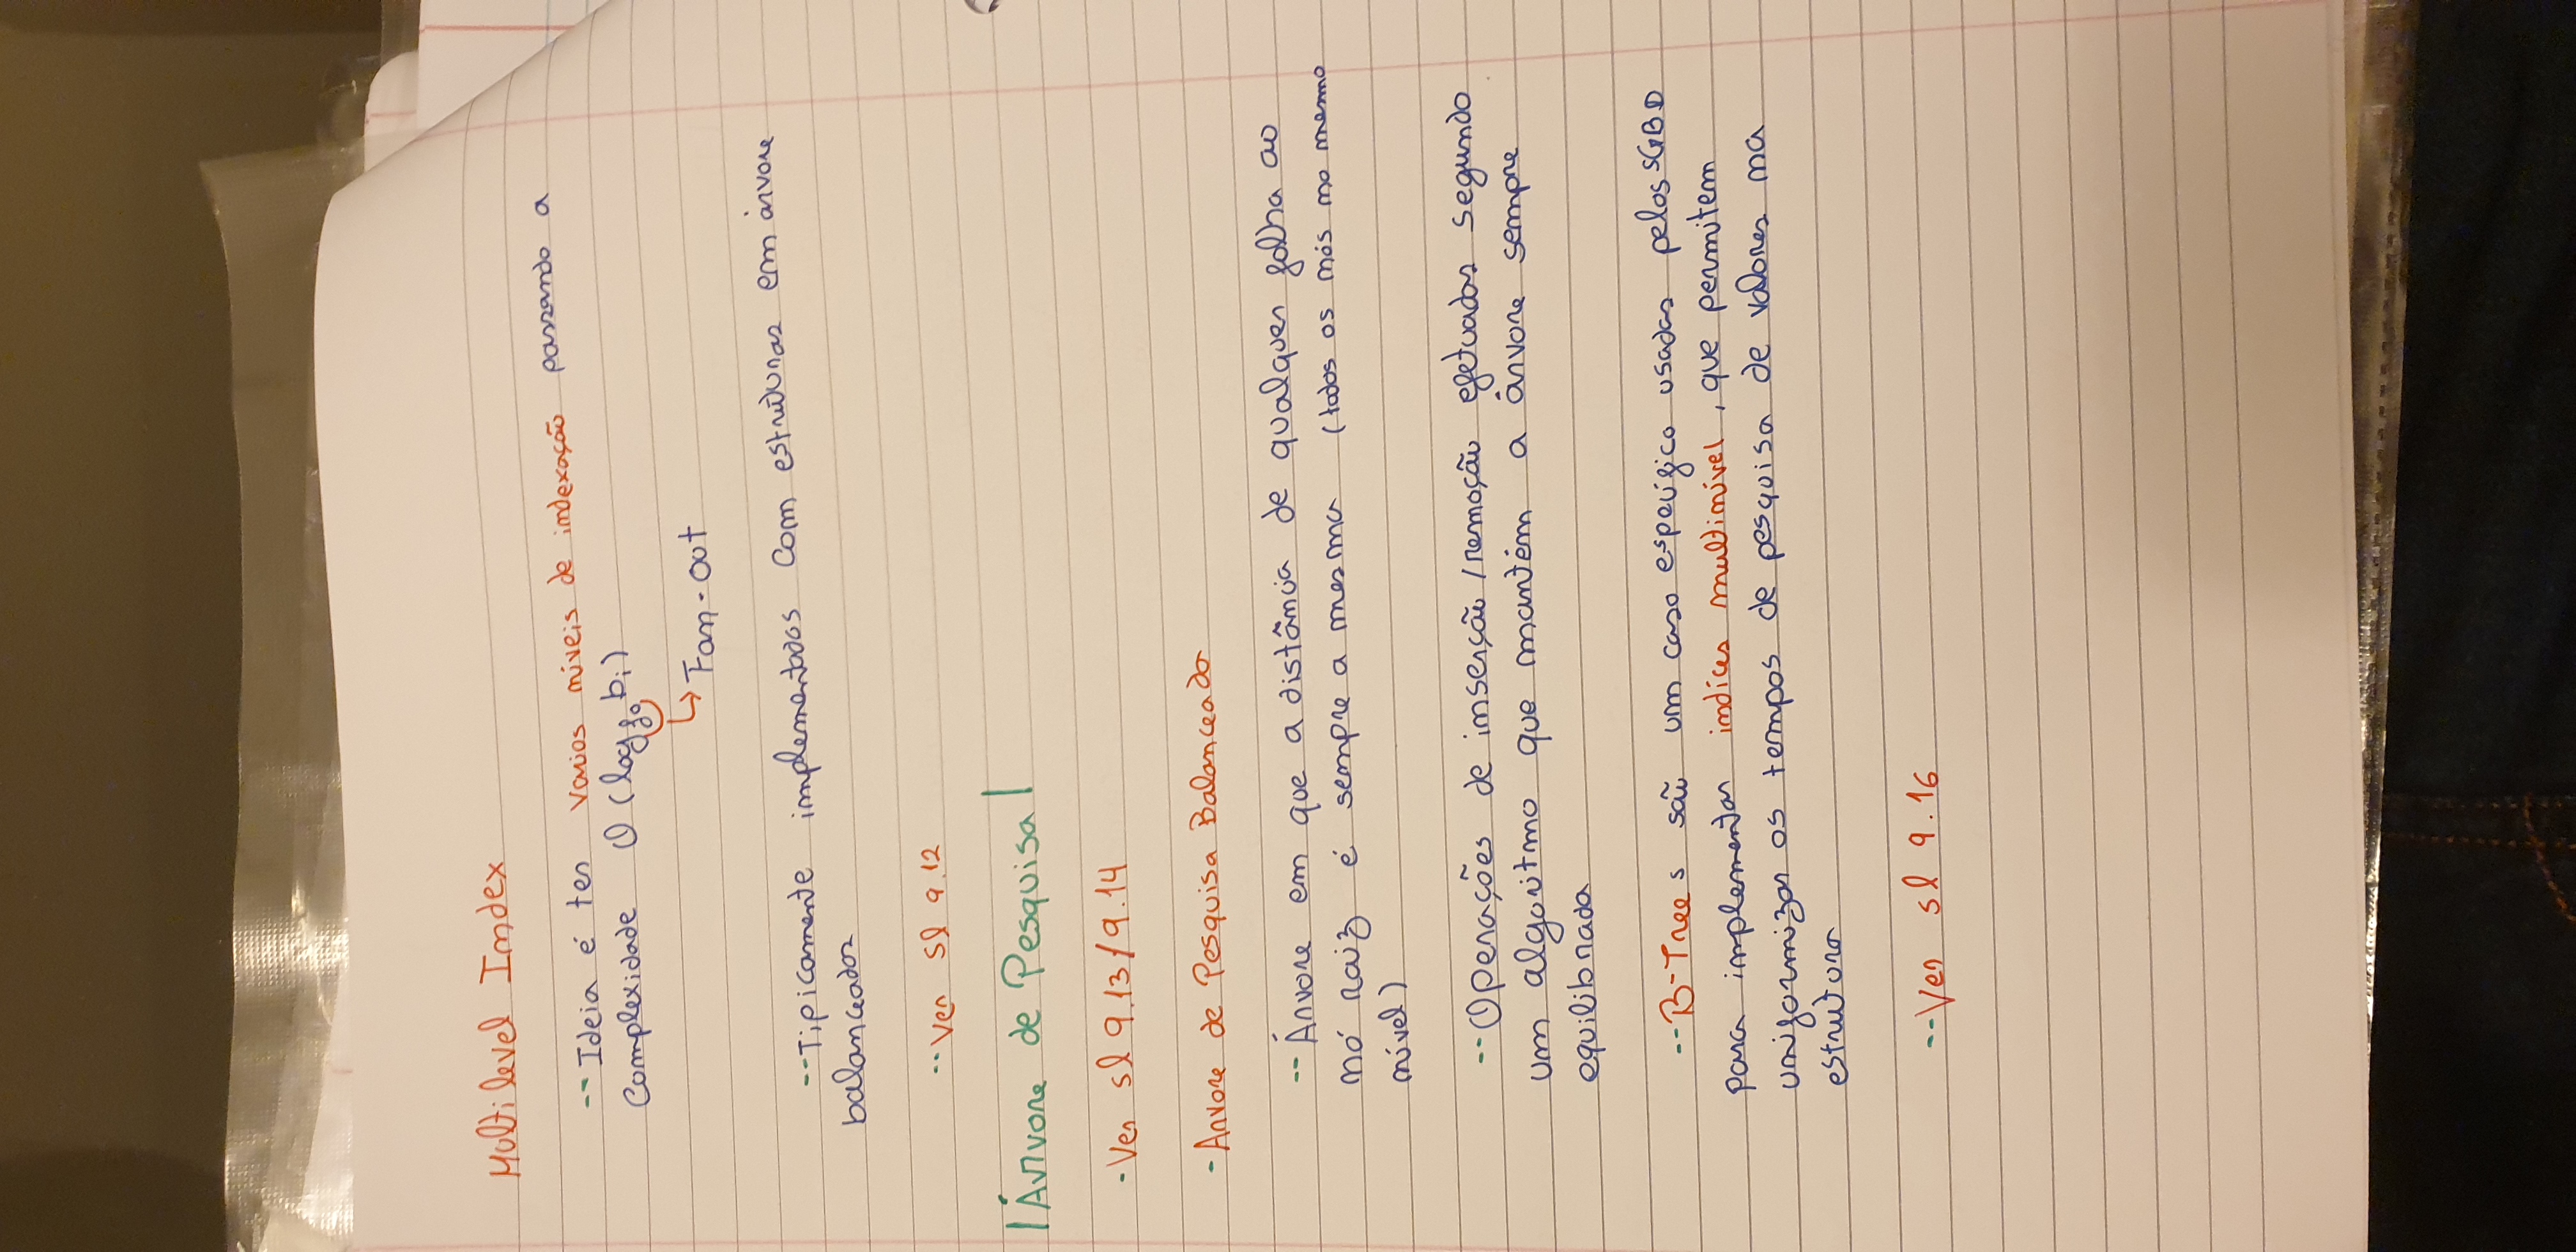 Multilevel Index
-- Ideia é ter varios níveis de indexação passando a
Complexidade O(log_fo b_i)
↳ Fan-out
-- Tipicamente implementados com estruturas em árvore
balanceadas
-- Ver Sl 9.12
| Árvore de Pesquisa |
- Ver sl 9.13/9.14
- Arvore de Pesquisa Balanceada
-- Árvore em que a distância de qualquer folha ao
nó raiz é sempre a mesma (todos os nós no mesmo
nível)
-- Operações de inserção/remoção efetuadas segundo
um algoritmo que mantém a árvore sempre
equilibrada
-- B-Trees são um caso específico usadas pelos SGBD
para implementar indíces multinível, que permitem
uniformizar os tempos de pesquisa de valores na
estrutura
-- Ver sl 9.16